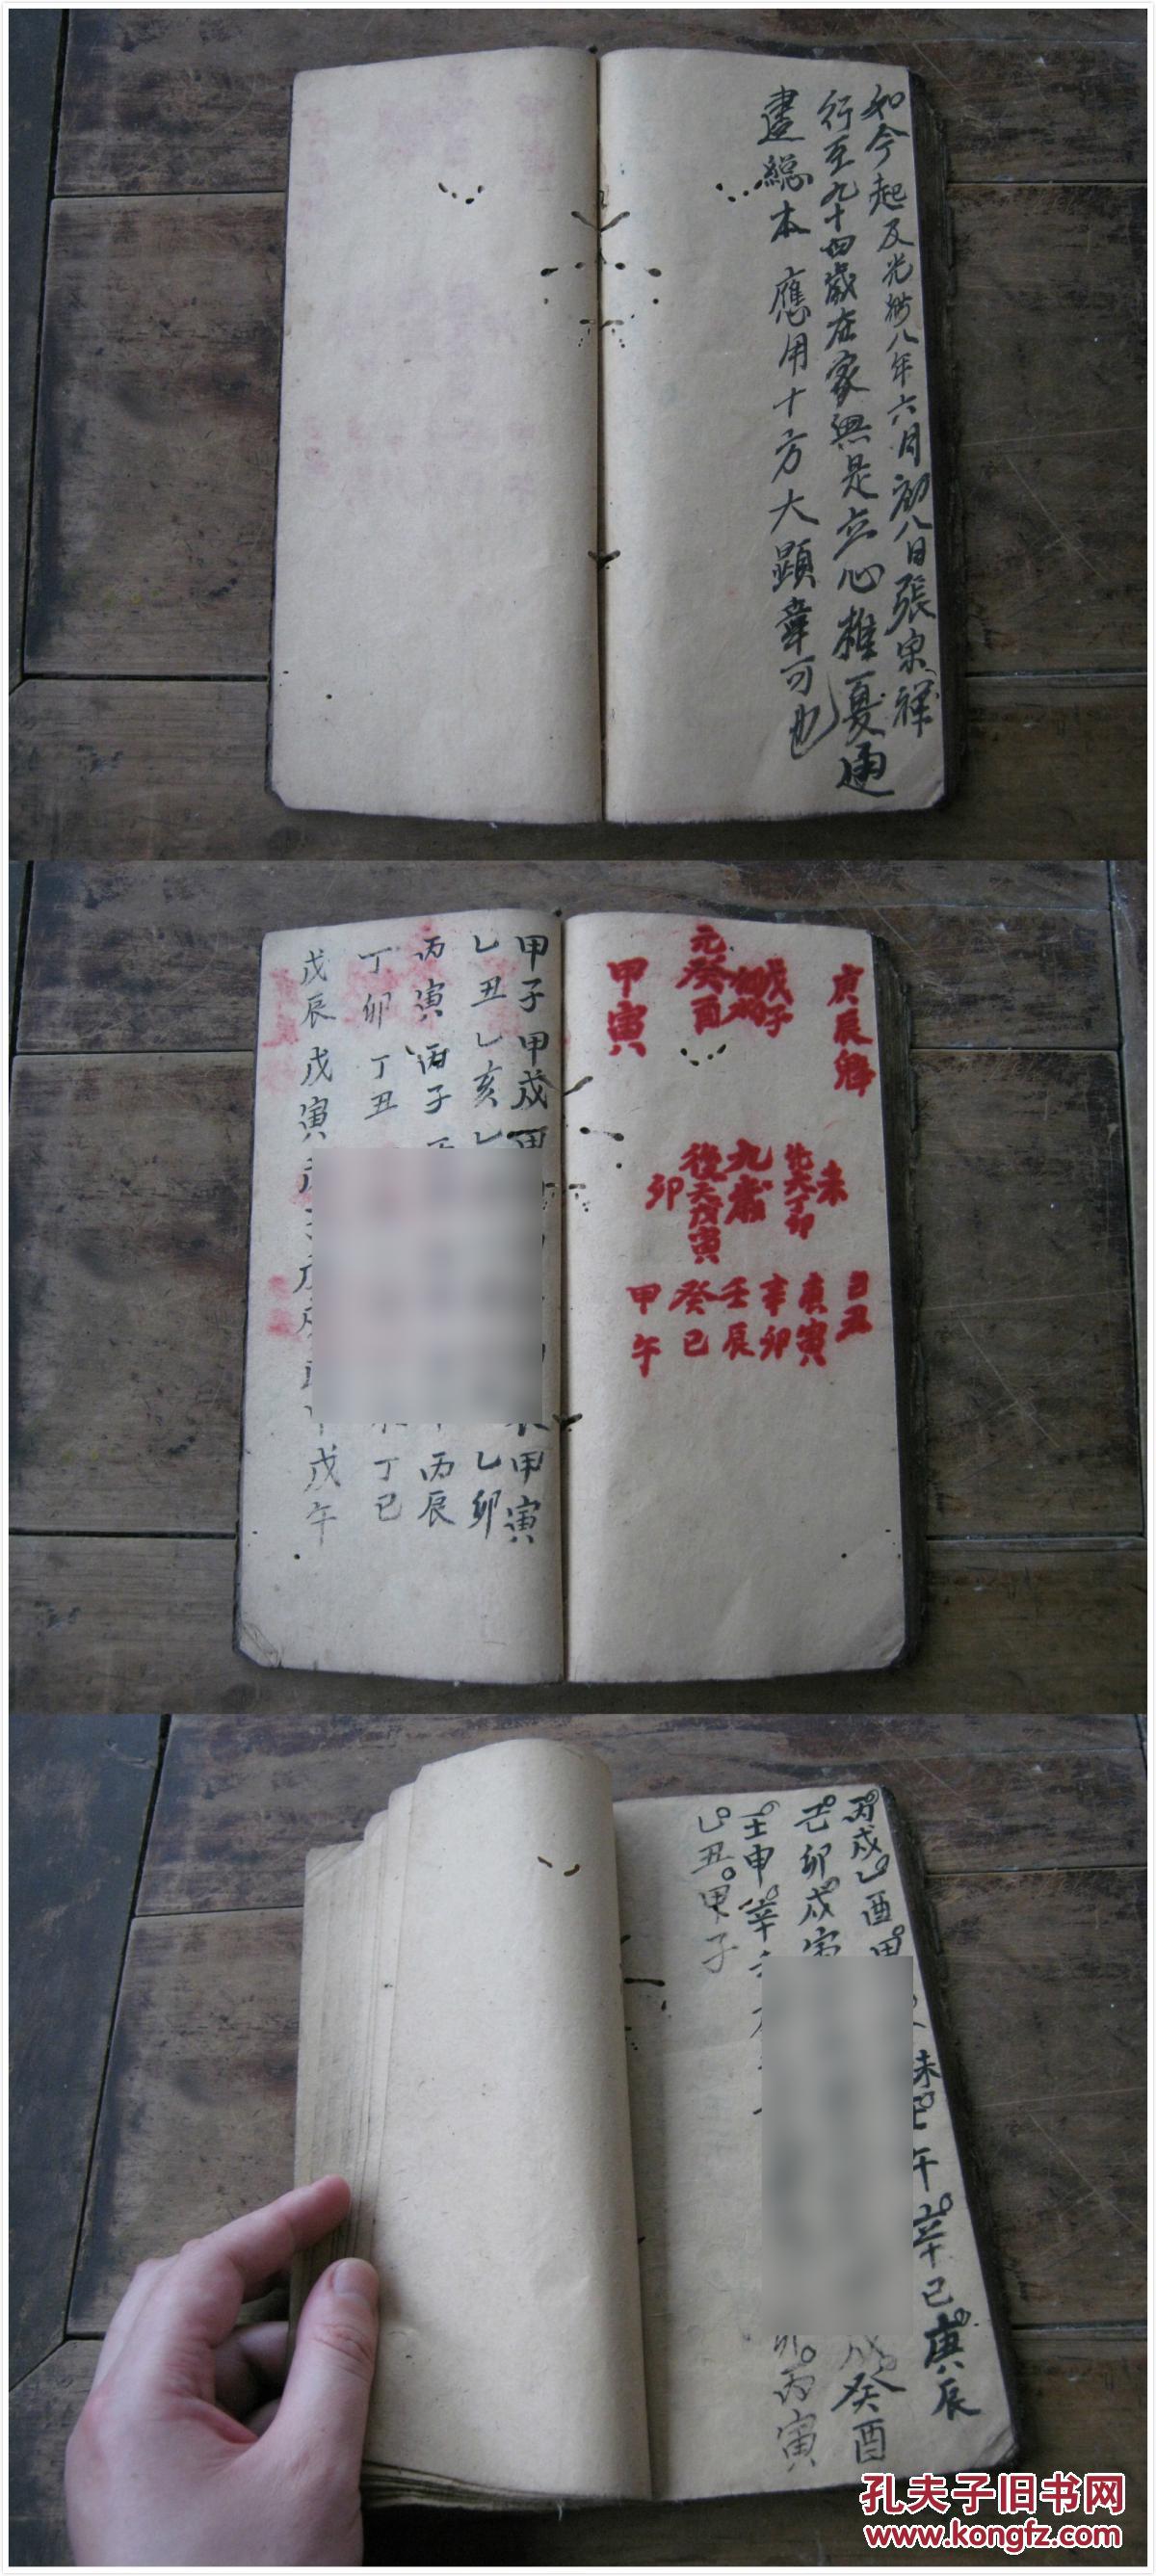 如今起反光緒八年六月初八日張宗祥
行至九十四歲在家無是立心推夏通
畫總本應用十方大顯章可也
庚辰
戊子
元癸酉
甲寅
未
先天丁卯
九歲
後天戊寅
卯
己丑
庚寅
辛卯
壬辰
癸巳
甲午
甲子甲戌甲
甲寅
乙丑乙亥乙
乙卯
丙寅丙子
丙辰
丁卯丁丑
丁巳
戊辰戊寅
戊午
丙戌乙酉甲
未壬午辛巳庚辰
己卯戊寅
癸酉
壬申辛
卯丙寅
乙丑甲子
孔夫子旧书网
www.kongfz.com